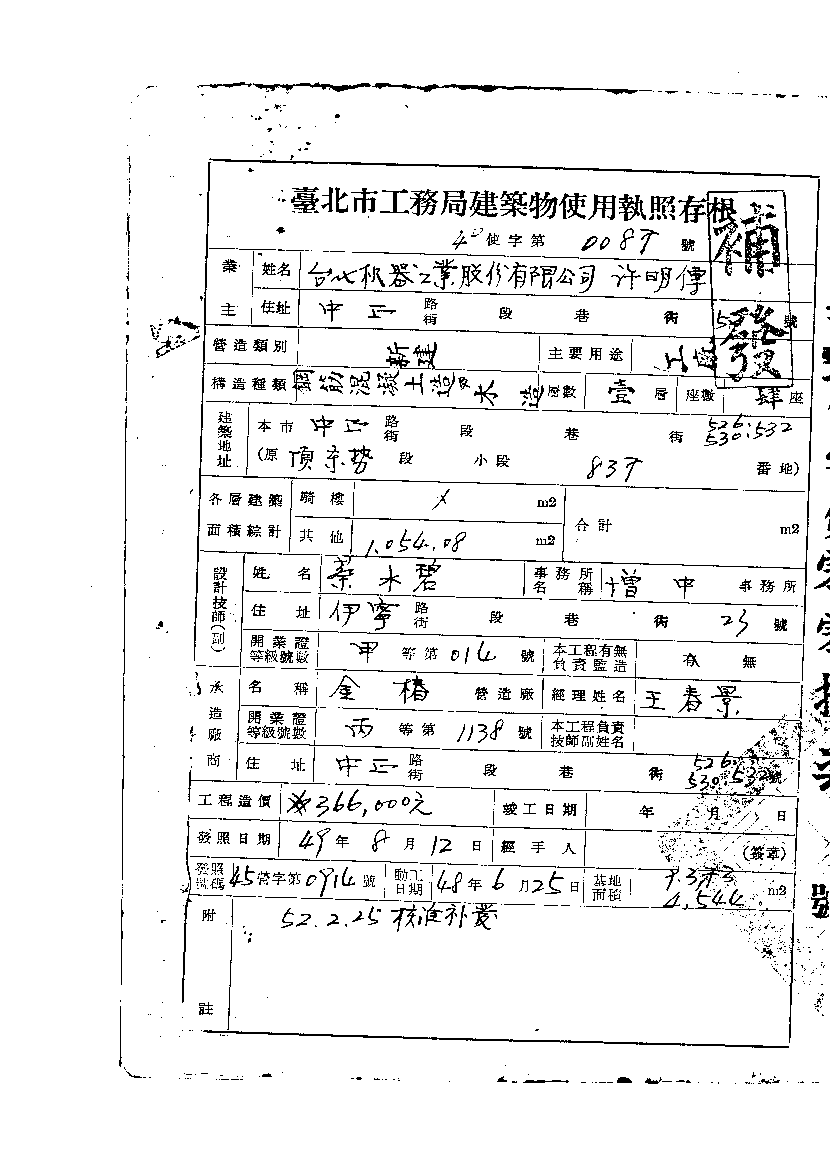 臺北市工務局建築物使用執照存根
補發
使字第 008 號
業主 姓名 台北机器工業股份有限公司 許明傳
住址 中正 路街 段 巷 街 號
營造類別 新建 主要用途 工廠
構造種類 鋼筋混凝土造 木造 層數 壹層 座數 肆座
建築地址 本市 中正 路街 段 巷 街 526.532 530.532
(原 頂東勢 段 小段 番地)
各層建築面積綜計 騎樓 m2 合計 m2
其他 1,054.08 m2
設計技師(副) 姓名 蔡水碧 事務所名稱 增中 事務所
住址 伊寧 路街 段 巷 街 23 號
開業證等級號數 甲 等第 014 號 本工程有無負責監造 有 無
承造廠商 名稱 金椿 營造廠 經理姓名 王春景
開業證等級號數 丙 等第 1138 號 本工程負責技師副姓名
住址 中正 路街 段 巷 街 526. 530.532 號
工程造價 366,000元 竣工日期 年 月 日
發照日期 49年8月12日 經手人 (簽章)
發照號碼 45營字第0914號 動工日期 48年6月25日 基地面積 4,544 m2
附註 52.2.25 核准补發
號